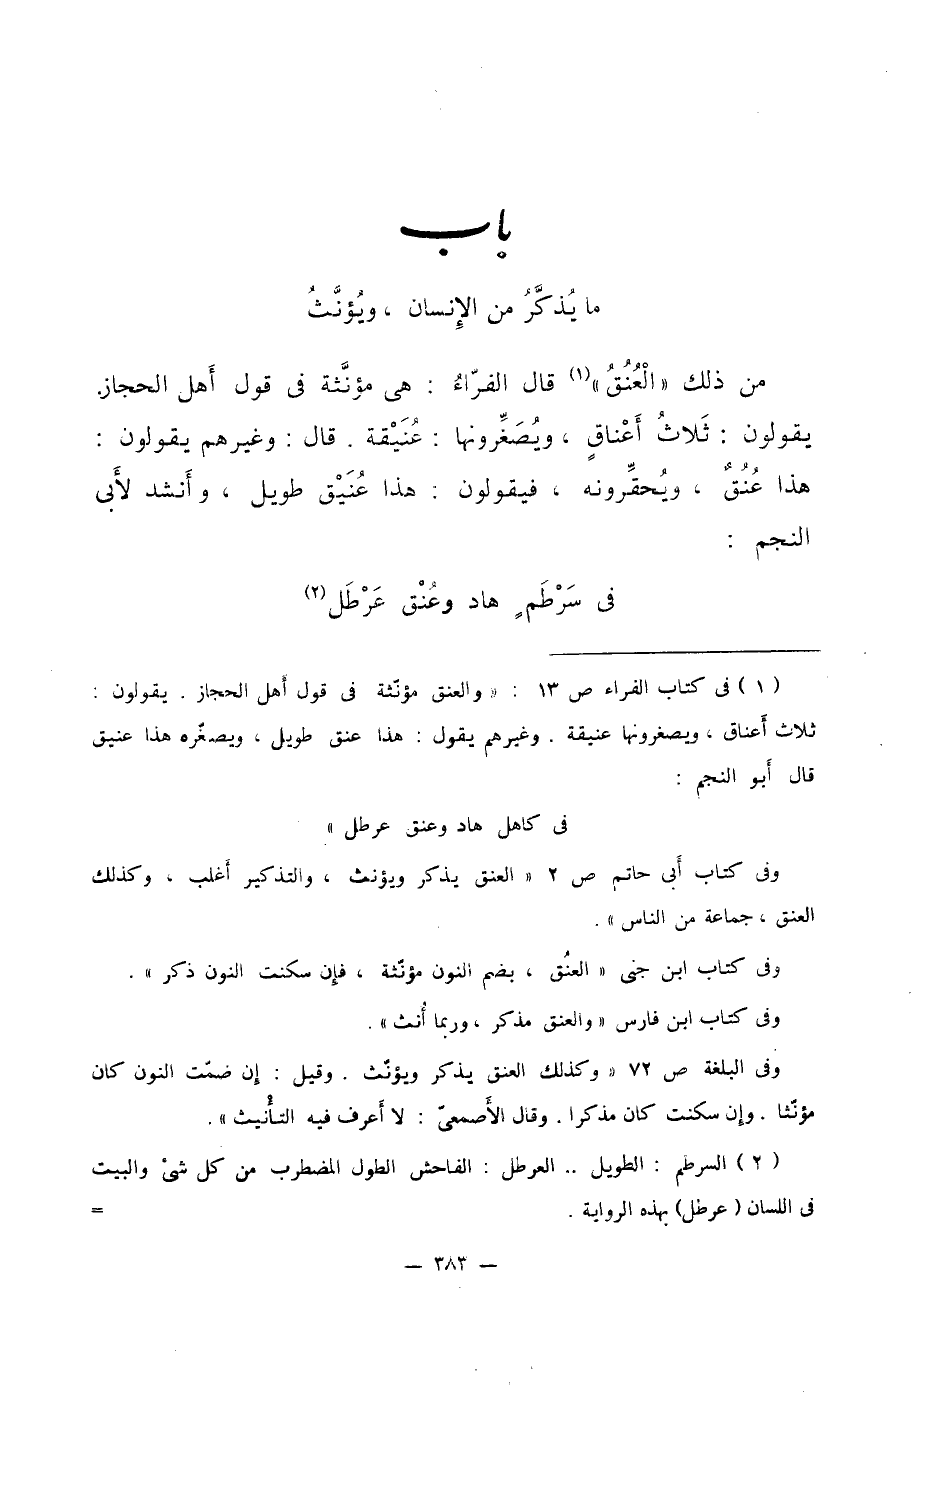 باب
ما يُذكَّرُ من الإِنسان ، ويُؤنَّثُ
من ذلك « الْعُنُقُ »(١) قال الفرّاءُ : هى مؤنَّثة فى قول أهل الحجاز.
يقولون : ثَلاثُ أَعْناقٍ ، ويُصَغِّرونها : عُنَيْقة . قال : وغيرهم يقولون :
هذا عُنُقٌ ، ويُحقِّرونه ، فيقولون : هذا عُنَيْق طويل ، وأَنشد لأَبى
النجم :
فى سَرْطَمٍ هاد وعُنْق عَرْطَل(٢)
( ١ ) فى كتاب الفراء ص ١٣ : « والعنق مؤنّثة فى قول أهل الحجاز . يقولون :
ثلاث أَعناق ، ويصغرونها عنيقة . وغيرهم يقول : هذا عنق طويل ، ويصغّره هذا عنيق
قال أَبو النجم :
فى كاهل هاد وعنق عرطل »
وفى كتاب أَبى حاتم ص ٢ « العنق يذكر ويؤنث ، والتذكير أَغلب ، وكذلك
العنق ، جماعة من الناس » .
وفى كتاب ابن جنى « العنُق ، بضم النون مؤنّثة ، فإن سكنت النون ذكر » .
وفى كتاب ابن فارس « والعنق مذكر ، وربما أُنث » .
وفى البلغة ص ٧٢ « وكذلك العنق يذكر ويؤنّث . وقيل : إن ضمّت النون كان
مؤنّثا . وإن سكنت كان مذكرا . وقال الأَصمعىّ : لا أَعرف فيه التأْنيث » .
( ٢ ) السرطم : الطويل .. العرطل : الفاحش الطول المضطرب من كل شىْ والبيت
فى اللسان ( عرطل) بهذه الرواية . =
— ٣٨٣ —